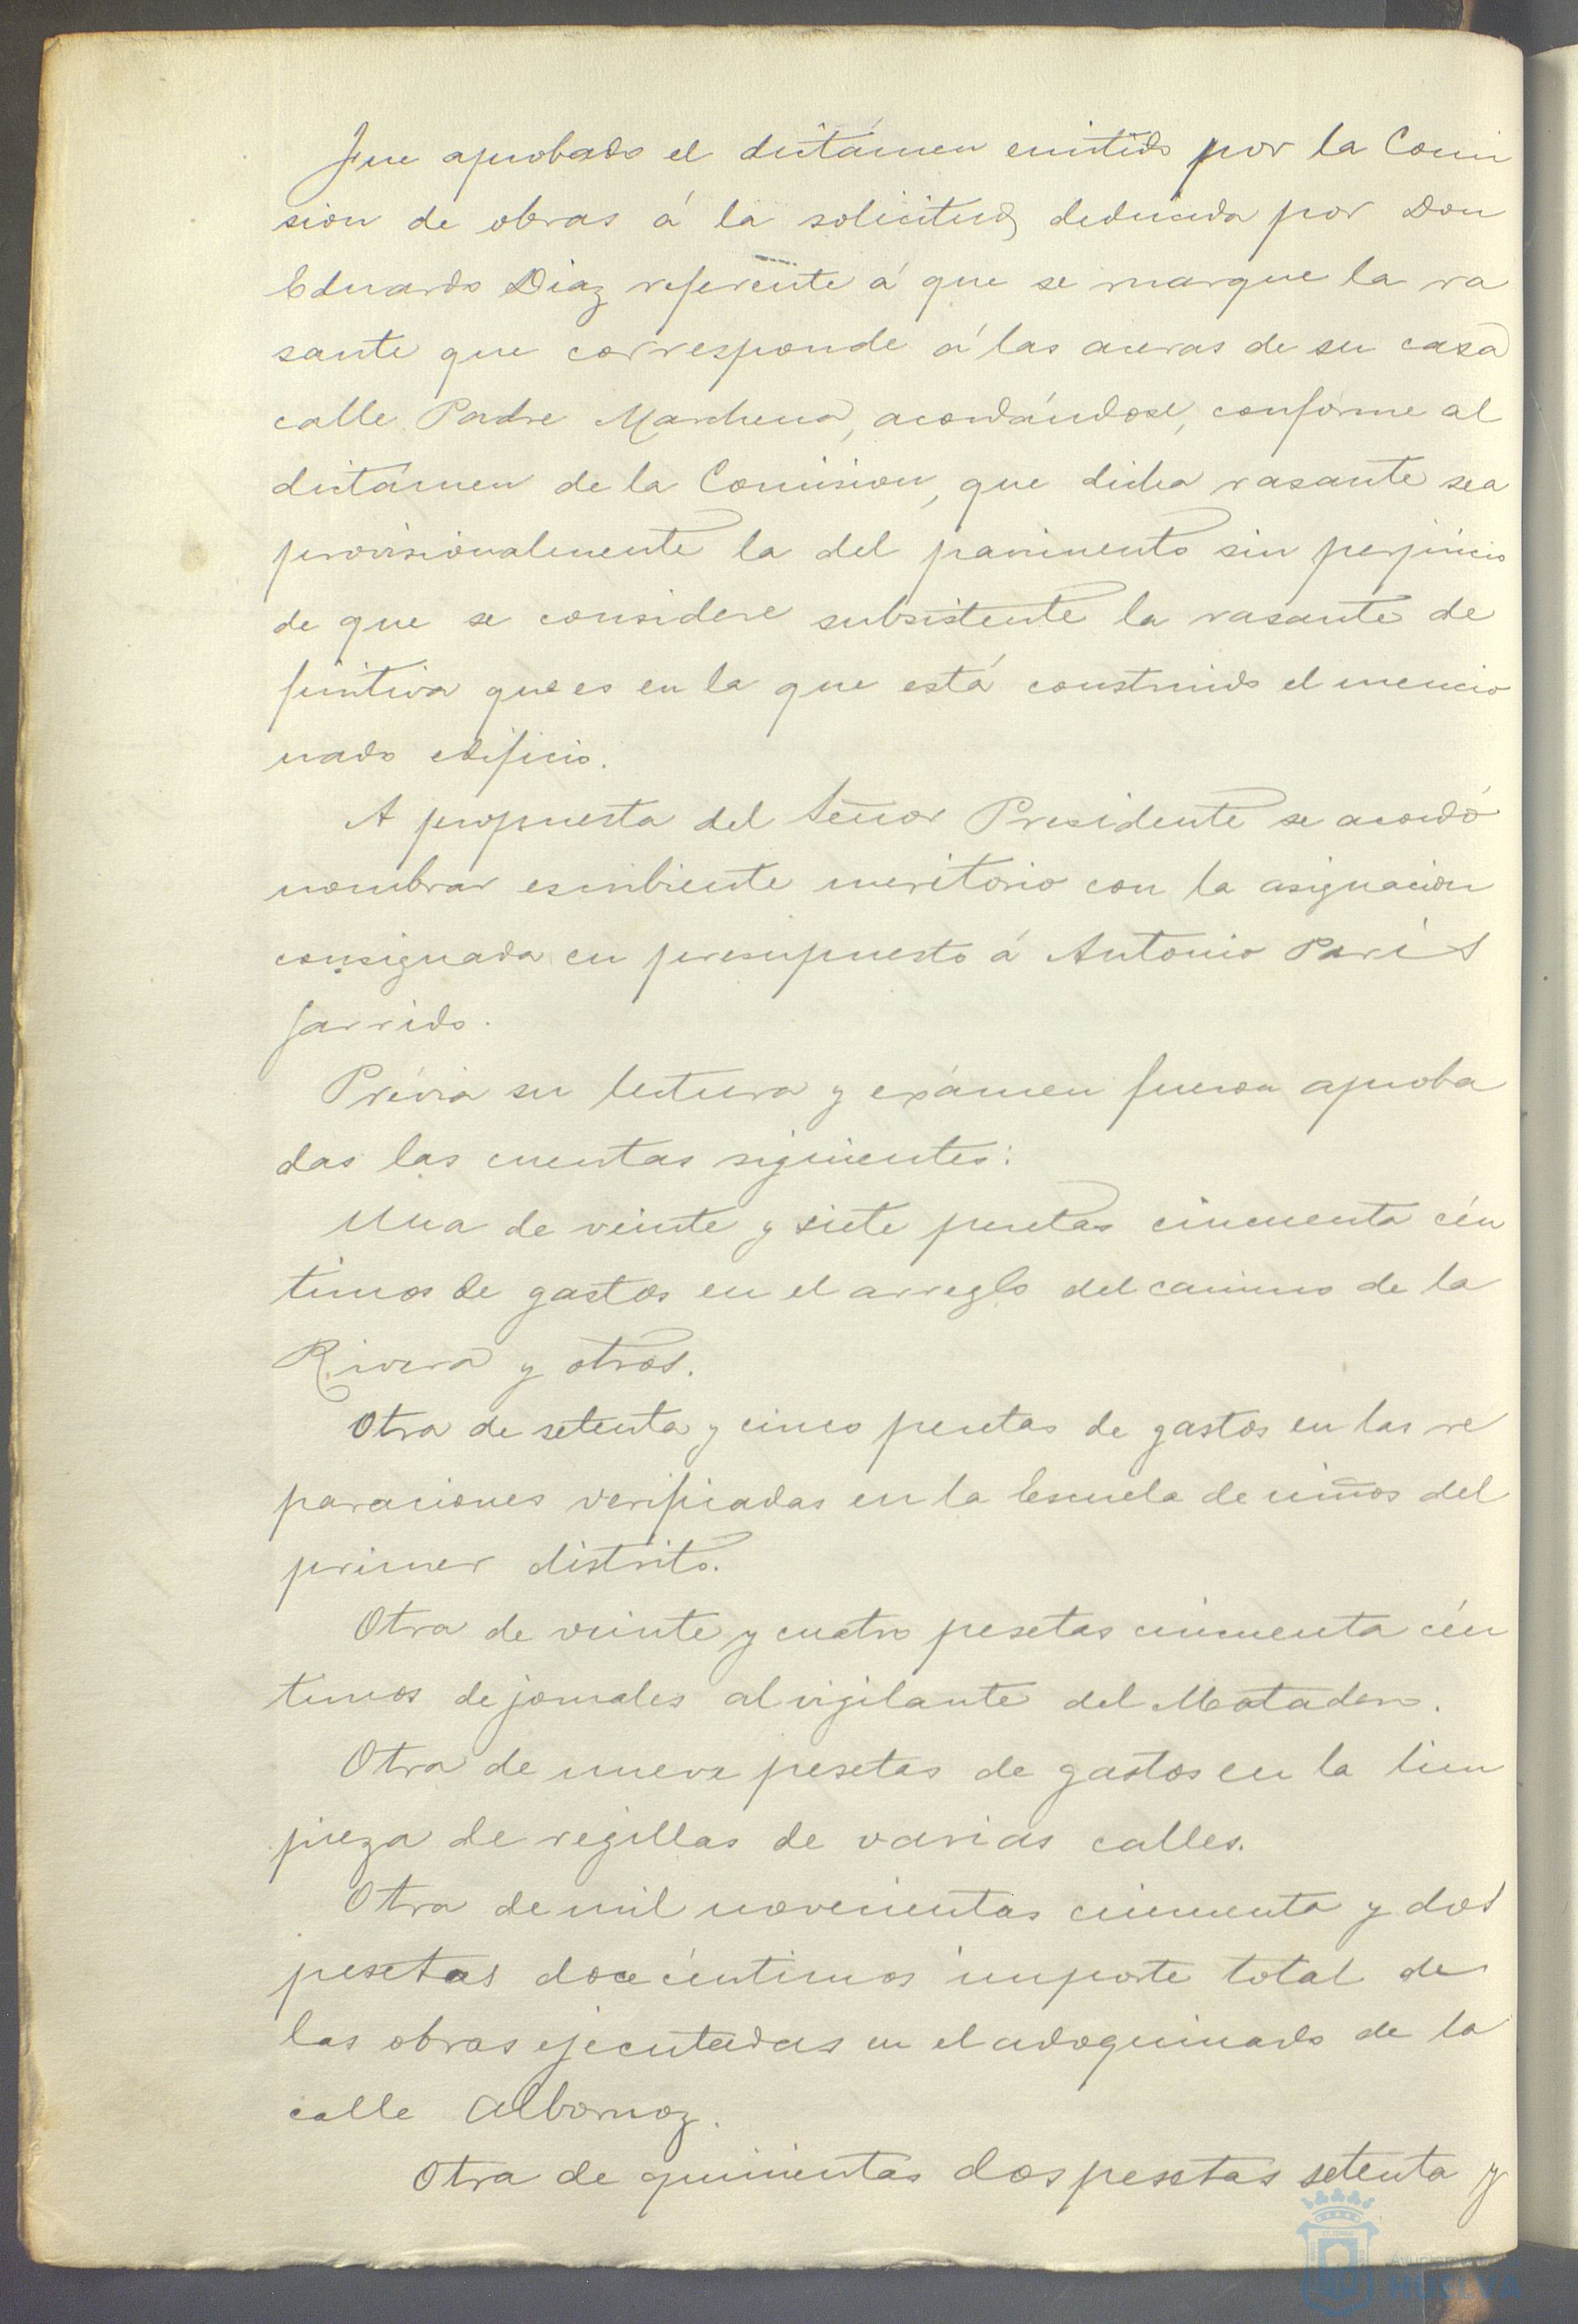 Fue aprobado el dictámen emitido por la Comi
sion de obras á la solicitud deducida por Don
Eduardo Diaz referente á que se marque la ra
sante que corresponde á las aceras de su casa
calle Padre Marchena, acordándose, conforme al
dictámen de la Comision, que dicha rasante sea
provisionalmente la del pavimento sin perjuicio
de que se considere subsistente la rasante de
finitiva que es en la que está construido el mencio
nado edificio.
A propuesta del Señor Presidente se acordó
nombrar escribiente meritorio con la asignacion
consignada en presupuesto á Antonio Paris
Garrido.
Prévia su lectura y exámen fueron aproba
das las cuentas siguientes:
Una de veinte y siete pesetas cincuenta cén
timos de gastos en el arreglo del camino de la
Rivera y otros.
Otra de setenta y cinco pesetas de gastos en las re
paraciones verificadas en la Escuela de niños del
primer distrito.
Otra de veinte y cuatro pesetas cincuenta cén
timos de jornales al vigilante del Matadero.
Otra de nueve pesetas de gastos en la lim
pieza de regillas de varias calles.
Otra de mil novecientas cincuenta y dos
pesetas doce céntimos importe total de
las obras ejecutadas en el adoquinado de la
calle Albornoz.
Otra de quinientas dos pesetas setenta y
HUELVA